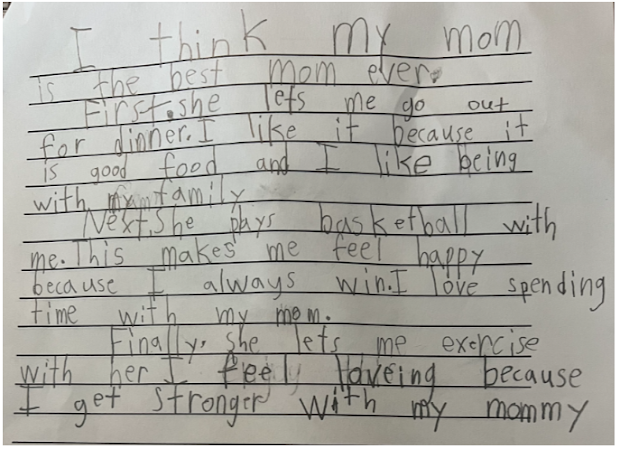 I think my mom
is the best mom ever.
First. she lets me go out
for dinner. I like it because it
is good food and I like being
with my family
Next. She pays basketball with
me. This makes me feel happy
because I always win. I love spending
time with my mom.
Finally, she lets me exercise
with her I feel loveing because
I get stronger with my mommy